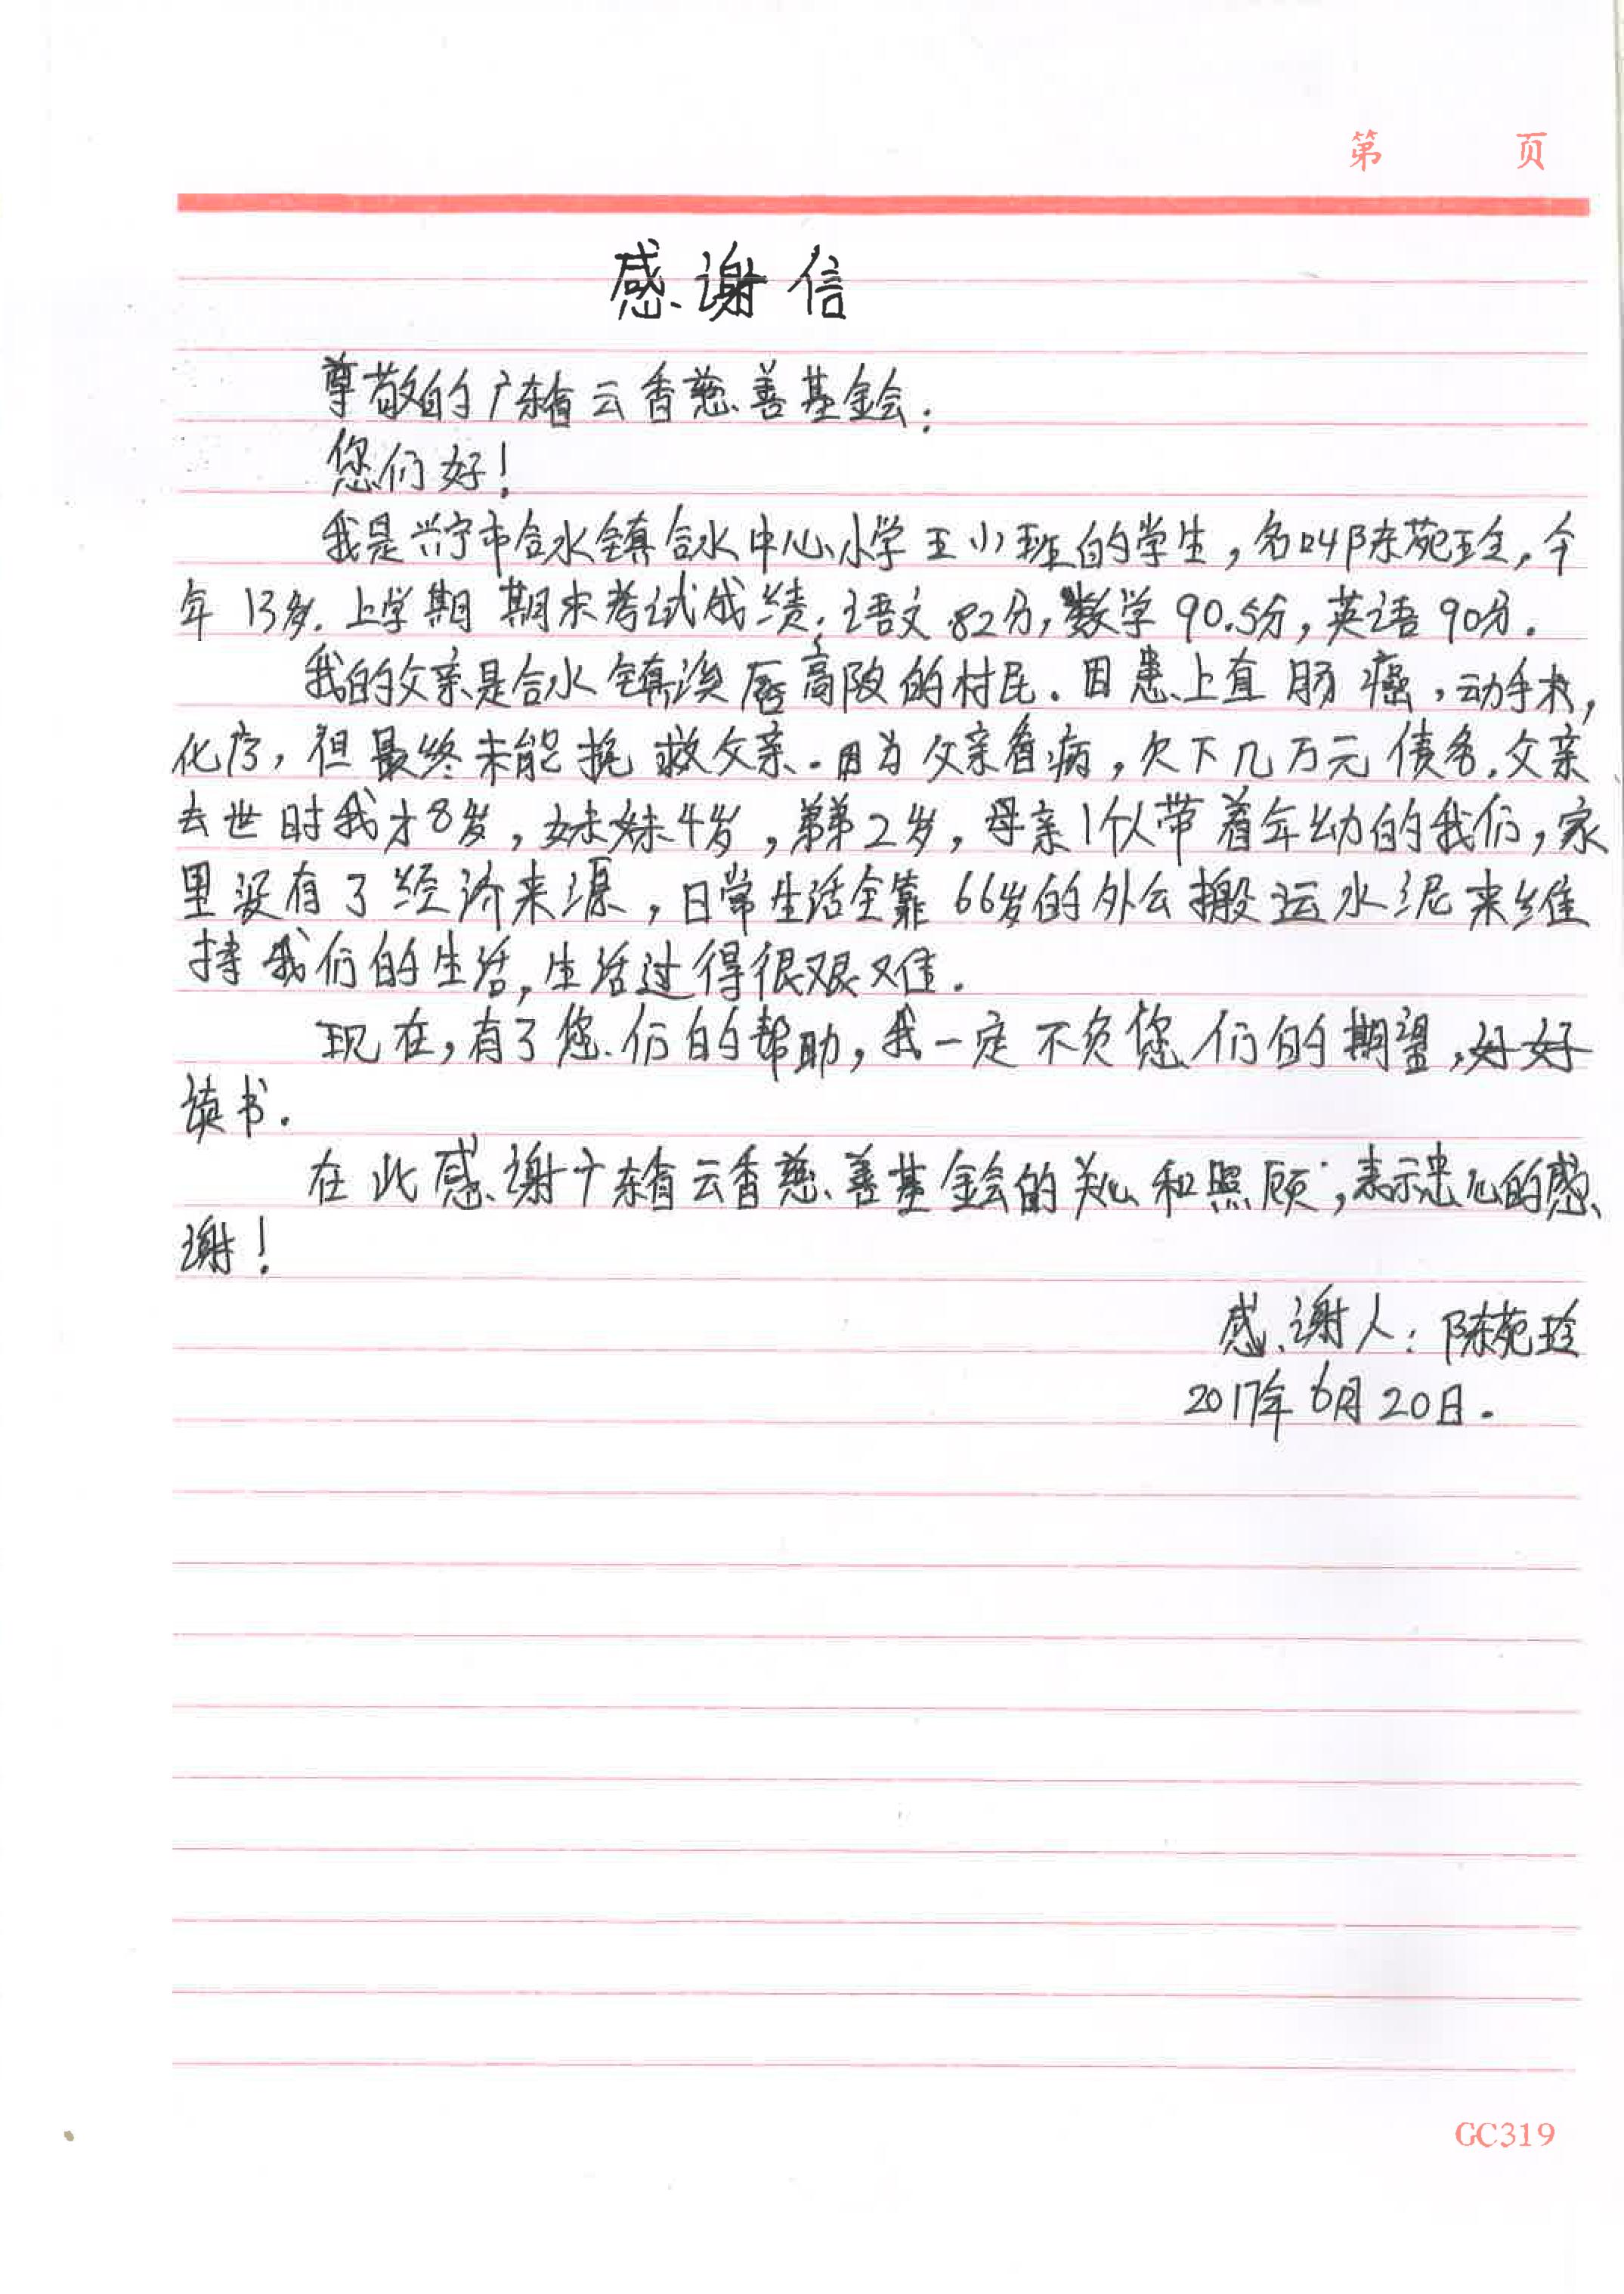 第 页
感谢信
尊敬的广东省云香慈善基金会:
您们好!
我是兴宁市合水镇合水中心小学五小班的学生,名叫陈苑玲,今
年13岁.上学期期末考试成绩:语文82分,数学90.5分,英语90分.
我的父亲是合水镇溪唇高陂的村民.因患上直肠癌,动手术,
化疗,但最终未能挽救父亲.因为父亲看病,欠下几万元债务.父亲
去世时我才8岁,妹妹4岁,弟弟2岁,母亲1个人带着年幼的我们,家
里没有了经济来源,日常生活全靠66岁的外公搬运水泥来维
持我们的生活,生活过得很艰难.
现在,有了您们的帮助,我一定不负您们的期望,好好
读书.
在此感谢广东省云香慈善基金会的关心和照顾,表示忠心的感
谢!
感谢人:陈苑玲
2017年6月20日.
GC319